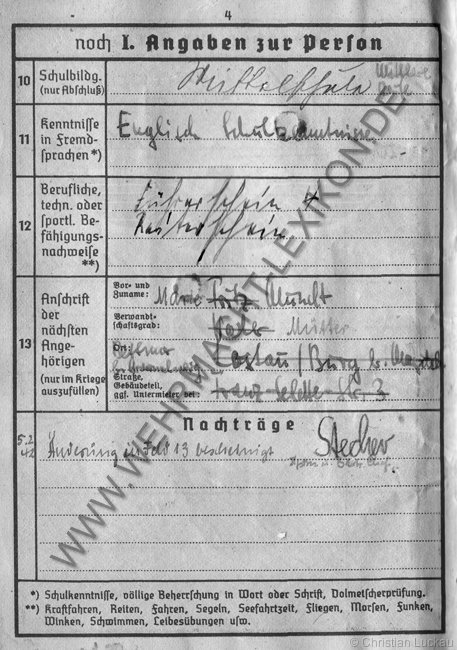 4
noch I. Angaben zur Person
10 Schulbildg. (nur Abschluß)
Mittelschule
11 Kenntnisse in Fremdsprachen *)
Englisch Schulkenntnisse
12 Berufliche, techn. oder sportl. Befähigungsnachweise **)
Führerschein 4
Reiterschein
13 Anschrift der nächsten Angehörigen (nur im Kriege auszufüllen)
Vor- und Zuname: Marie Fritz
Verwandtschaftsgrad: Vater Mutter
Ort: Lostau / Burg b.
Straße, Gebäudeteil, ggf. Untermieter bei: Franz-Seldte-Str. 3
Nachträge
5.2.42 Änderung zu Feld 13 bescheinigt
Stecher
*) Schulkenntnisse, völlige Beherrschung in Wort oder Schrift, Dolmetscherprüfung.
**) Kraftfahren, Reiten, Fahren, Segeln, Seefahrtzeit, Fliegen, Morsen, Funken,
Winken, Schwimmen, Leibesübungen usw.
www.WEHRMACHT-LEXIKON.DE
© Christian Luckau